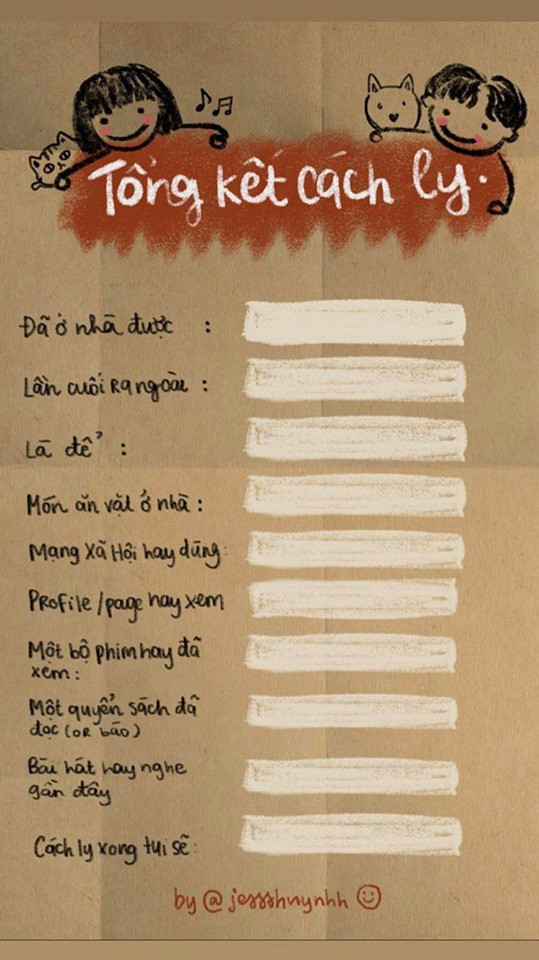 Tổng kết cách ly.
Đã ở nhà được :
Lần cuối ra ngoài :
Là để :
Món ăn vặt ở nhà :
Mạng Xã Hội hay dùng :
Profile/page hay xem
Một bộ phim hay đã
xem :
Một quyển sách đã
đọc (or báo)
Bài hát hay nghe
gần đây
Cách ly xong tui sẽ :
by @jessshuynhh